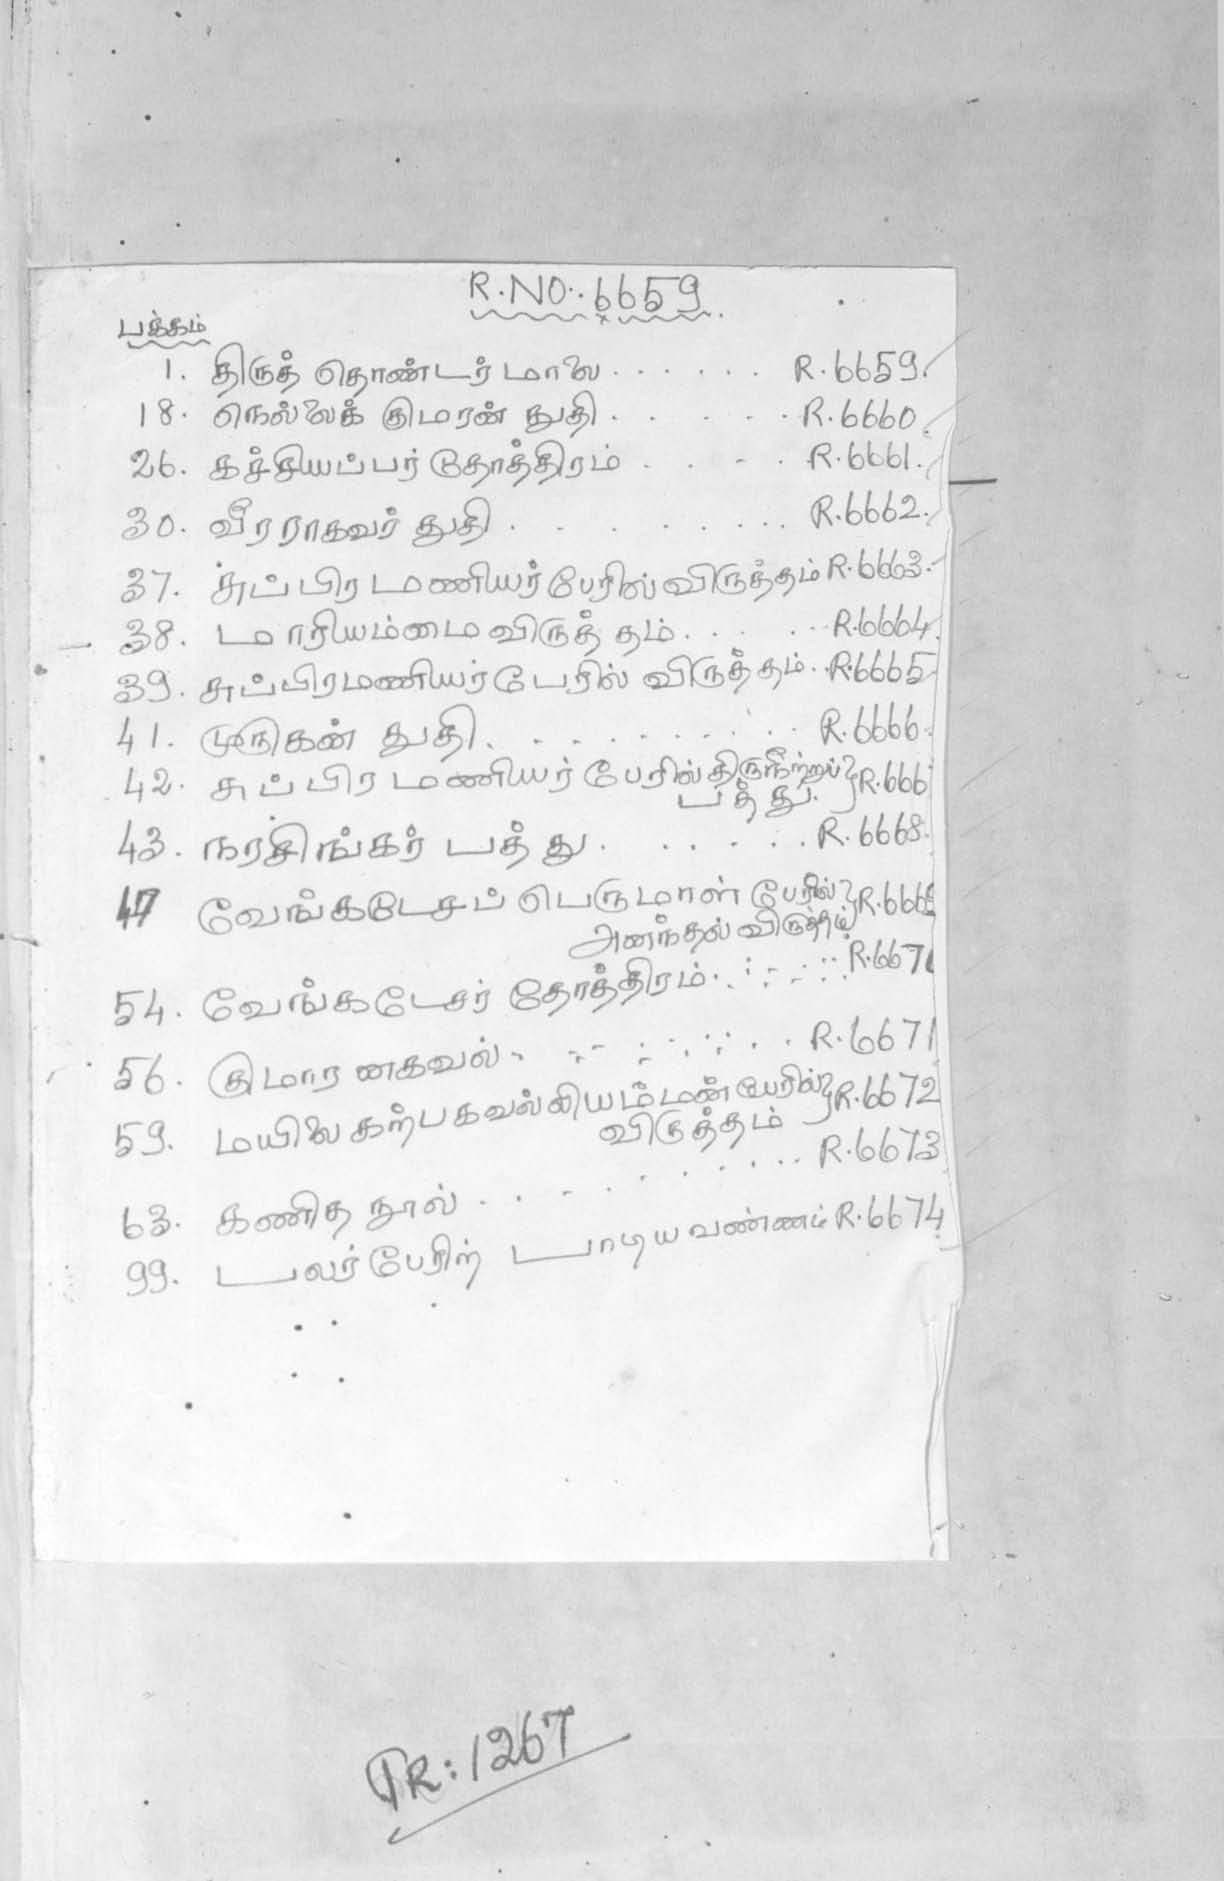 R.NO:. 6659
பக்கம்
1. திருத் தொண்டர் மாலை . . . . . . R.6659.
18. நெல்லைக் குமரன் துதி . . . . . R.6660.
26. கச்சியப்பர் தோத்திரம் . . . . R.6661.
30. வீரராகவர் துதி . . . . . . . . . R.6662.
37. சுப்பிரமணியர் பேரில் விருத்தம் R.6663.
38. மாரியம்மை விருத்தம் . . . . . R.6664.
39. சுப்பிரமணியர் பேரில் விருத்தம் . . R.6665
41. முருகன் துதி . . . . . . . . . . R.6666.
42. சுப்பிரமணியர் பேரில் திருநீற்றுப் } R.666
பத்து.
43. நரசிங்கர் பத்து . . . . . . R.6668.
47 வேங்கடேசப் பெருமாள் பேரில் } R.666
அனந்தல் விருத்தம்
54. வேங்கடேசர் தோத்திரம் . . . . . . R.667
56. குமாரனகவல் . . . . . . . . R.6671
59. மயிலை கற்பகவல்லியம்மன் பேரில் } R.6672
விருத்தம்
63. கணித நூல் . . . . . . . . . . R.6673
99. பலர் பேரிற் பாடிய வண்ணம் R.6674.
TR:1267